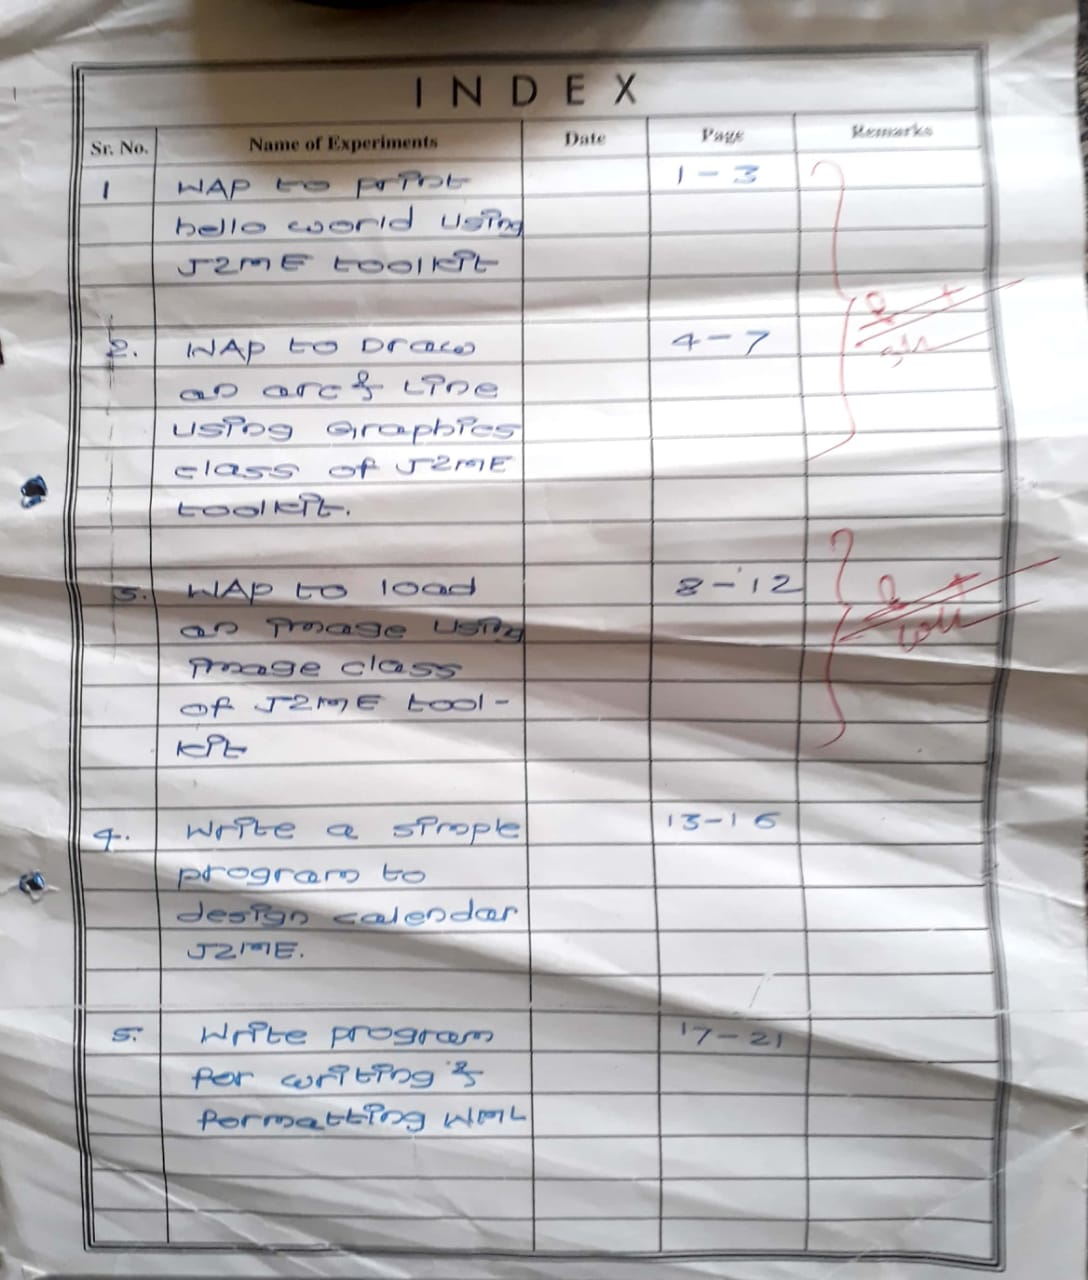 INDEX
Sr. No. Name of Experiments Date Page Remarks
1 WAP to print 1-3
hello world using
J2ME toolkit
2. WAP to Draw 4-7
an arc & Line
using Graphics
class of J2ME
toolkit.
3. WAP to load 8-12
an image using
image class
of J2ME tool-
kit
4. Write a simple 13-16
program to
design calendar
J2ME.
5. Write program 17-21
for writing &
formatting WML